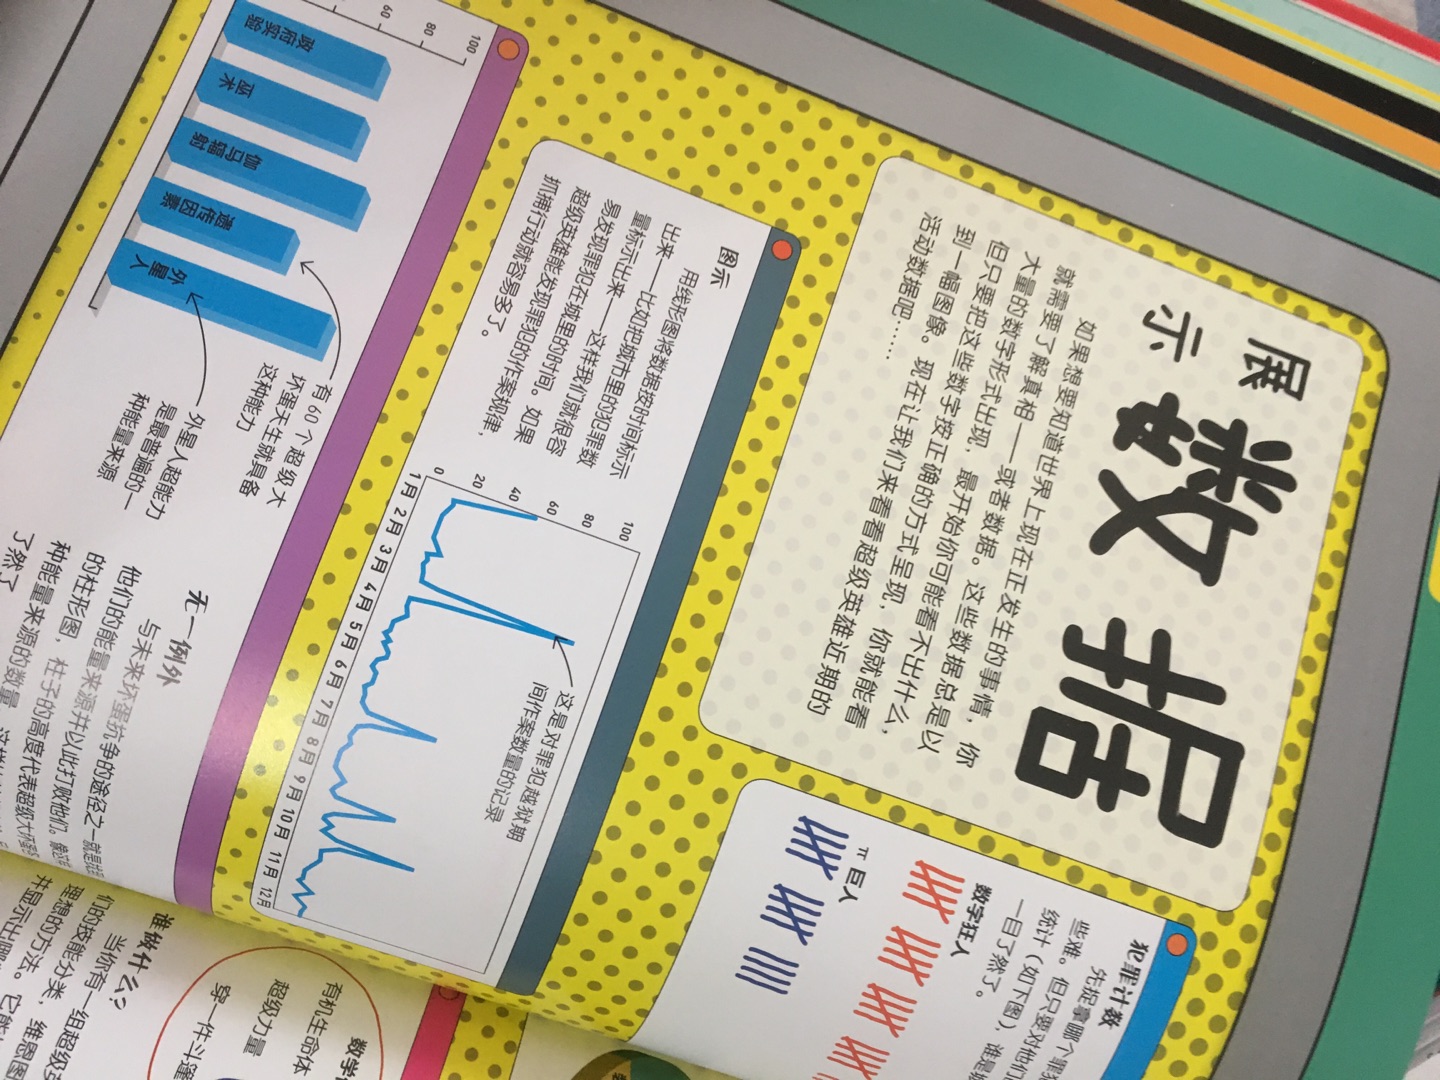 展示
数据
如果想要知道世界上现在正发生的事情，你
就需要了解真相——或者数据。这些数据总是以
大量的数字形式出现，最开始你可能看不出什么，
但只要把这些数字按正确的方式呈现，你就能看
到一幅图像。现在让我们来看看超级英雄近期的
活动数据吧……
犯罪计数
先捉拿哪个罪
些难。但只要对他们
统计（如下图），谁是
一目了然了。
数字狂人
π巨人
图示
用线形图将数据按时间标示
出来——比如把城市里的犯罪数
量标示出来——这样我们就很容
易发现罪犯在城里的时间。如果
超级英雄能发现罪犯的作案规律，
抓捕行动就容易多了。
100
80
60
40
20
0
1月 2月 3月 4月 5月 6月 7月 8月 9月 10月 11月 12月
这是对罪犯越狱期
间作案数量的记录
100
80
60
政府实验
巫术
伽马辐射
遗传因素
外星人
有60个超级大
坏蛋天生就具备
这种能力
外星人超能力
是最普遍的一
种能量来源
无一例外
与未来坏蛋抗争的途径之一就是
他们的能量来源并以此打败他们。
的柱形图，柱子的高度代表超级大坏蛋
种能量来源的数量
了然了
谁做什么？
当你有一组超级
们的技能分类，维恩图
理想的方法。它能
并显示出哪
数学
有机生命体
超级力量
穿一件斗篷